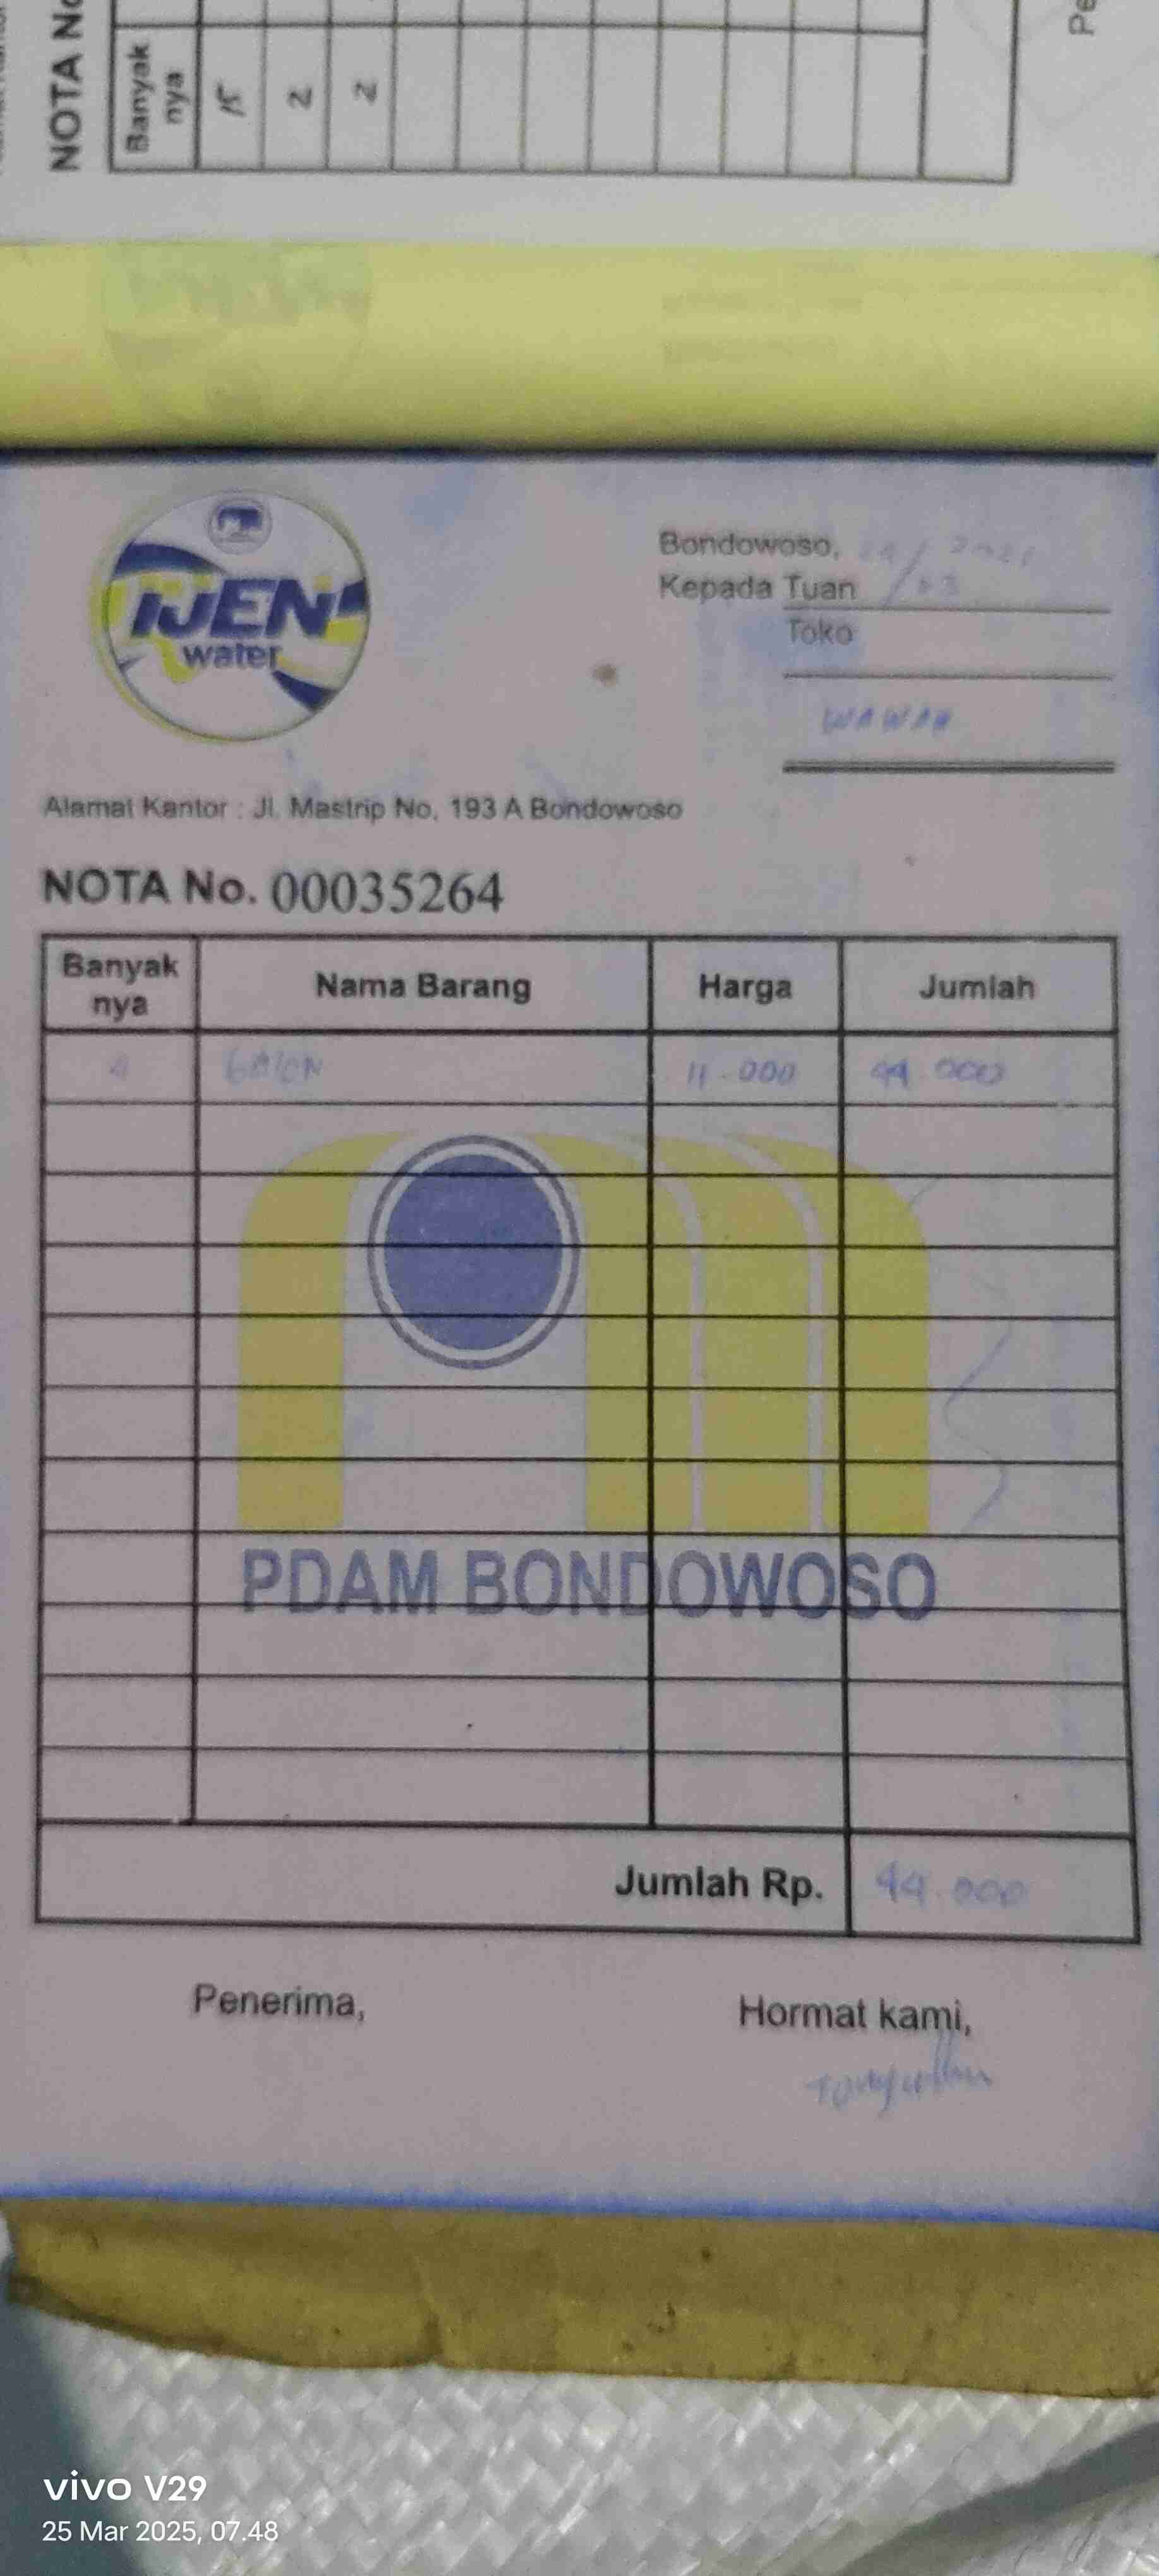 NOTA No
Banyak
nya
15
2
2
Pe
IJEN
water
Bondowoso,
Kepada Tuan
Toko
WAWAN
Alamat Kantor : Jl. Mastrip No. 193 A Bondowoso
NOTA No. 00035264
Banyak nya Nama Barang Harga Jumlah
4 GALON 11.000 44.000
PDAM BONDOWOSO
Jumlah Rp. 44.000
Penerima, Hormat kami,
vivo V29
25 Mar 2025, 07.48